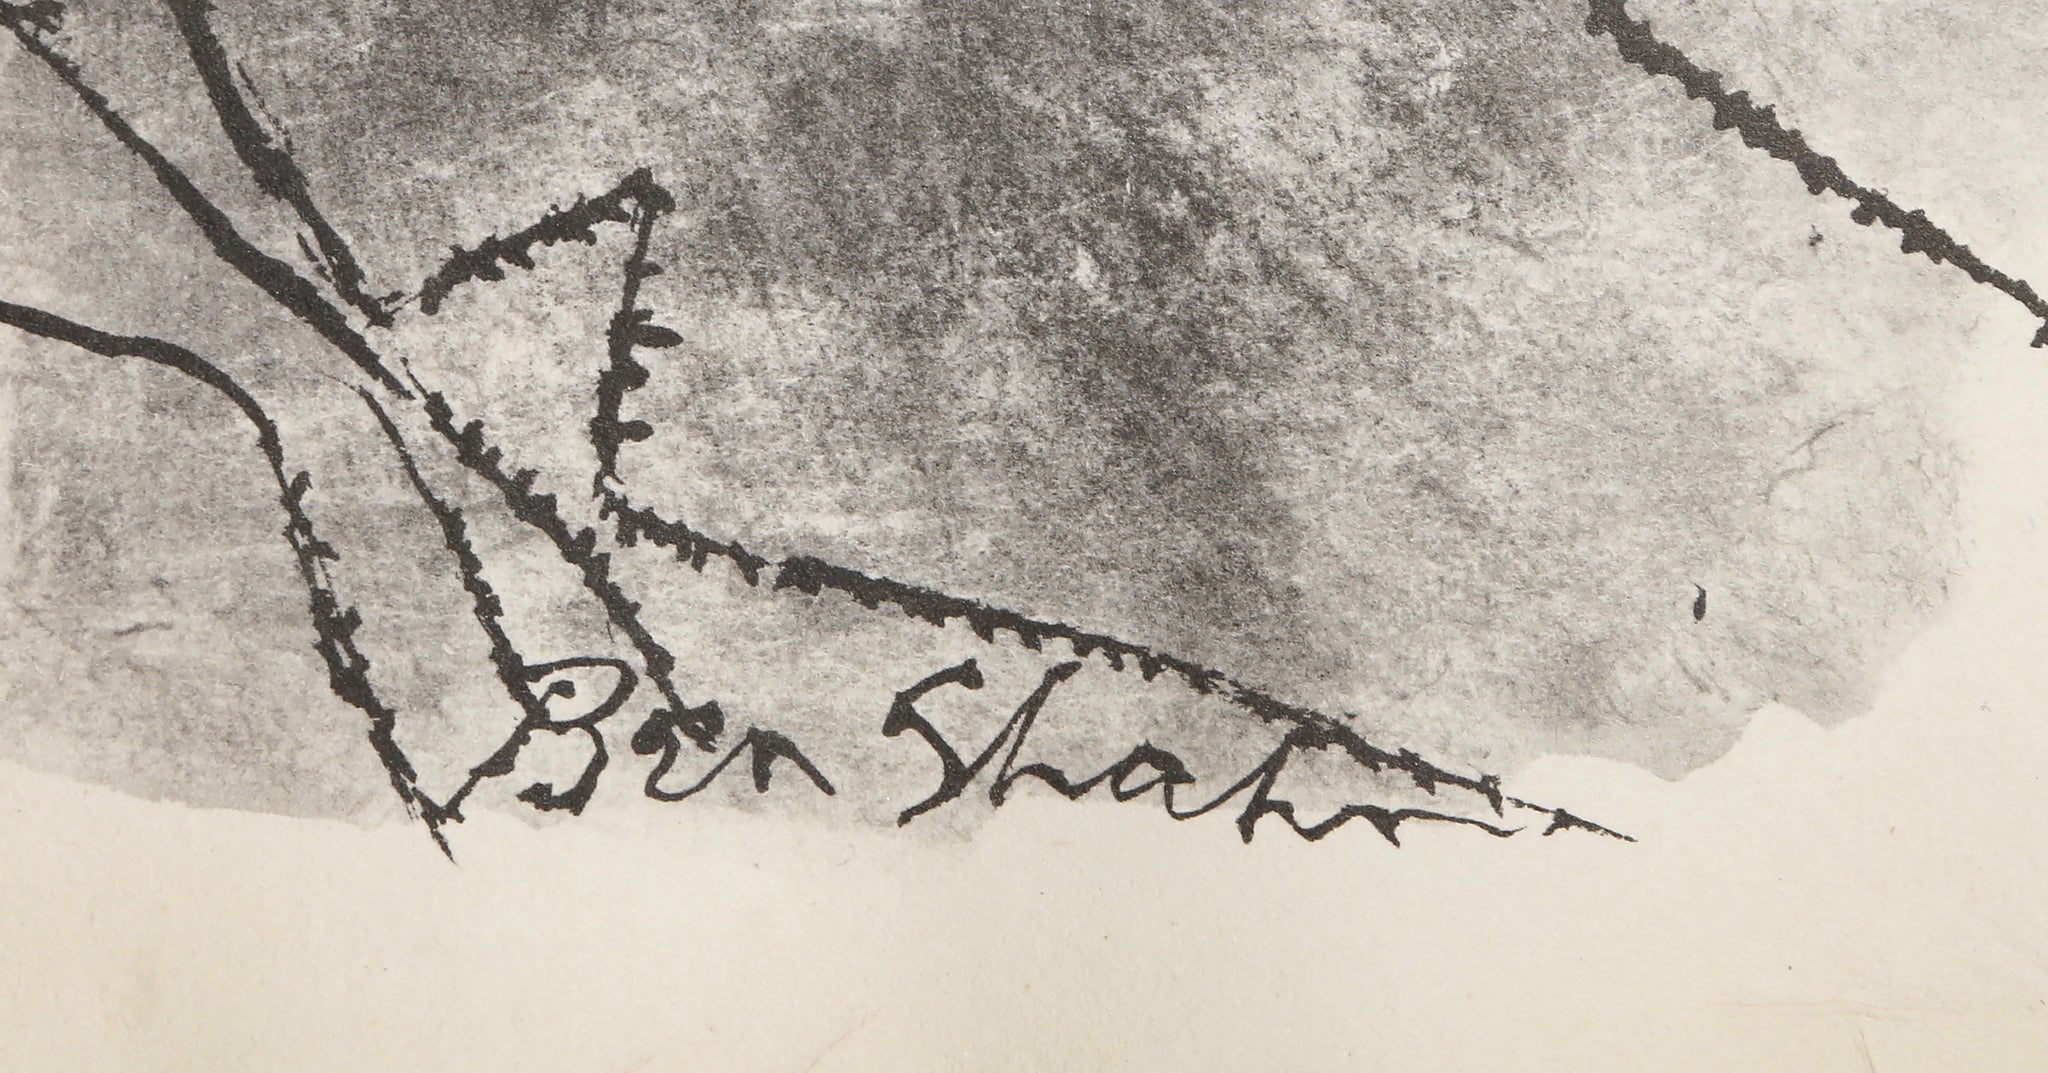 Ben Shahn